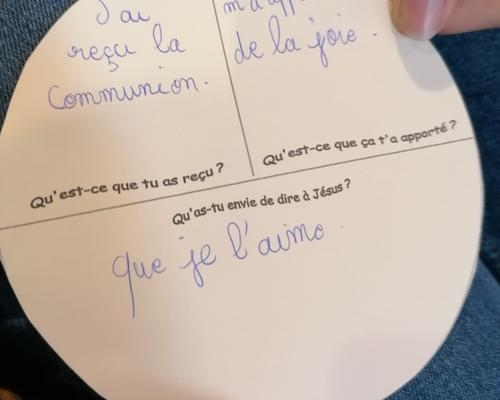 J'ai
reçu la
Communion.
Qu'est-ce que tu as reçu ?
de la joie.
Qu'est-ce que ça t'a apporté ?
Qu'as-tu envie de dire à Jésus ?
que je l'aime.